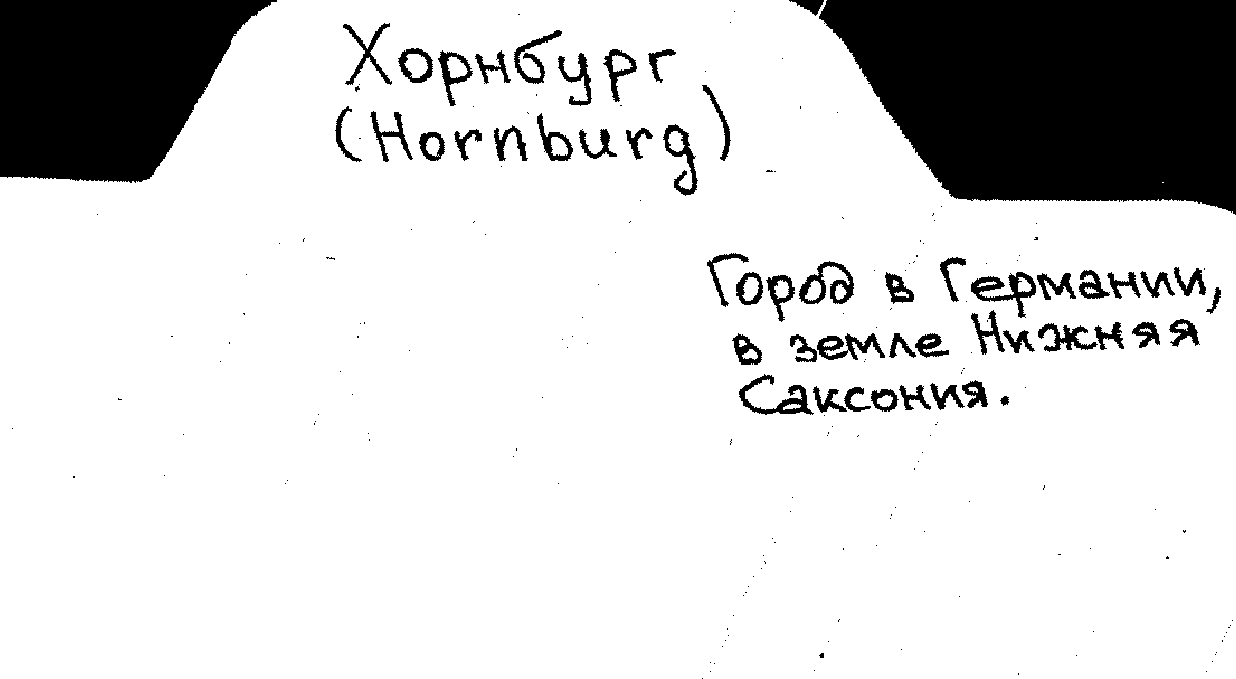 Хорнбург
(Hornburg)
Город в Германии,
в земле Нижняя
Саксония.